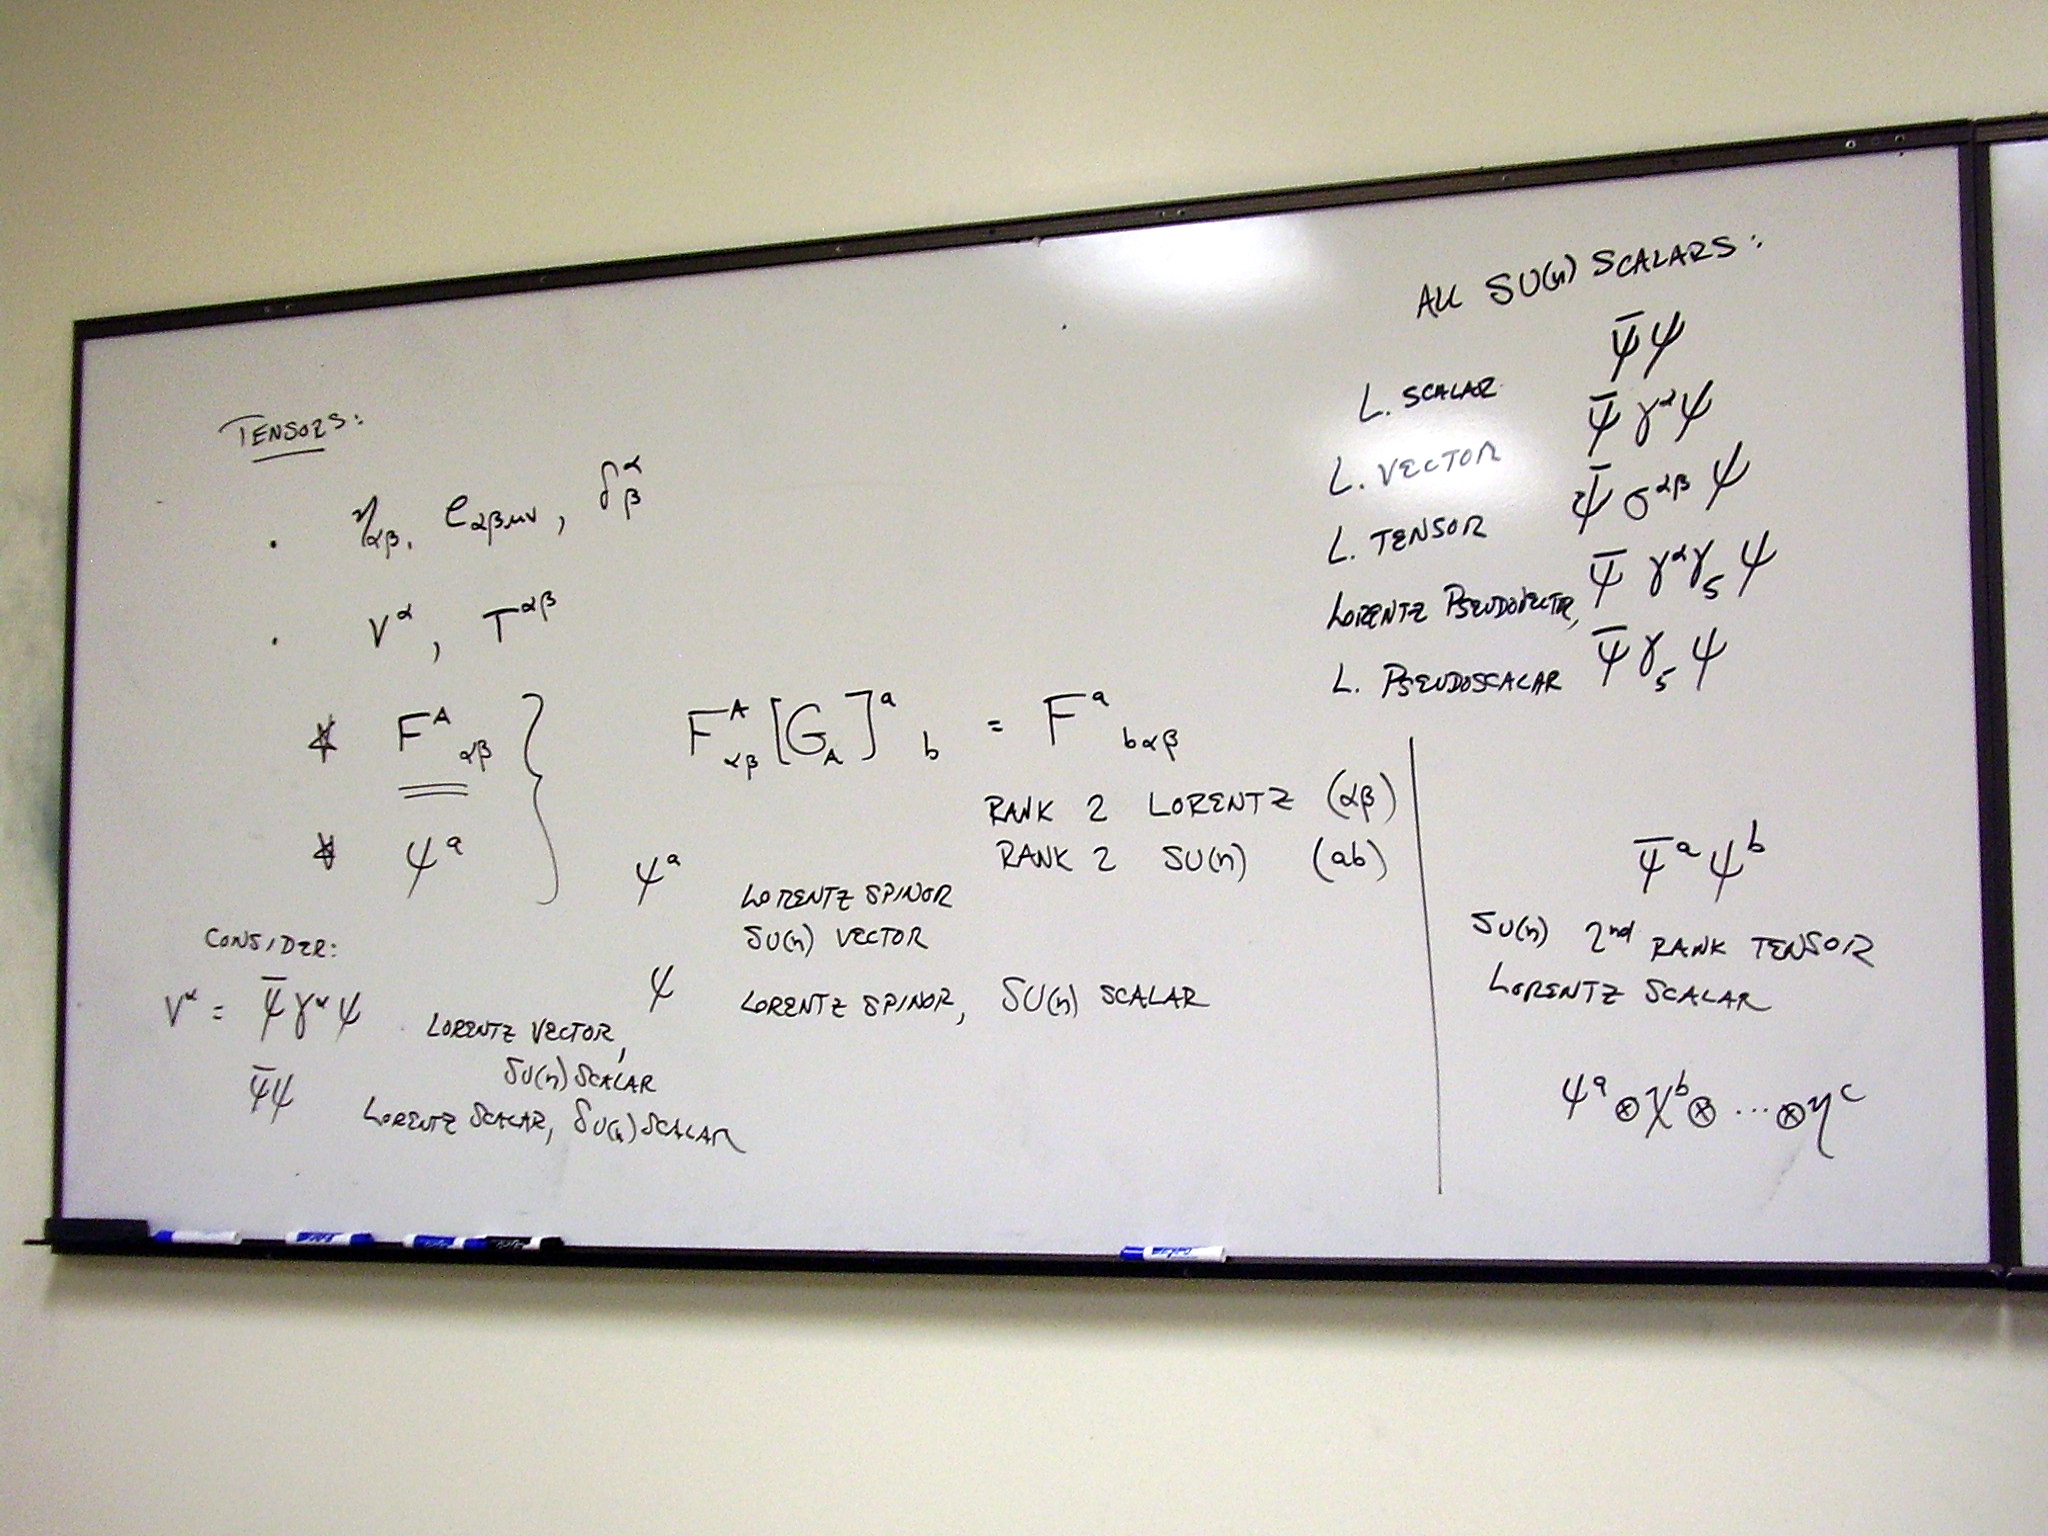 TENSORS:
· η_αβ, e_αβμν, δ^α_β
· V^α, T^αβ
* F^A_αβ } F^A_αβ [G_A]^a_b = F^a_bαβ
RANK 2 LORENTZ (αβ)
RANK 2 SU(n) (ab)
* ψ^a
ψ^a LORENTZ SPINOR
SU(n) VECTOR
ψ LORENTZ SPINOR, SU(n) SCALAR
CONSIDER:
V^α = ψ̄γ^αψ LORENTZ VECTOR,
SU(n) SCALAR
ψ̄ψ LORENTZ SCALAR, SU(n) SCALAR
ALL SU(n) SCALARS:
L. SCALAR ψ̄ψ
L. VECTOR ψ̄γ^αψ
L. TENSOR ψ̄σ^αβψ
LORENTZ PSEUDOVECTOR, ψ̄γ^αγ_5ψ
L. PSEUDOSCALAR ψ̄γ_5ψ
ψ̄^aψ^b
SU(n) 2nd RANK TENSOR
LORENTZ SCALAR
ψ^a⊗χ^b⊗...⊗η^c